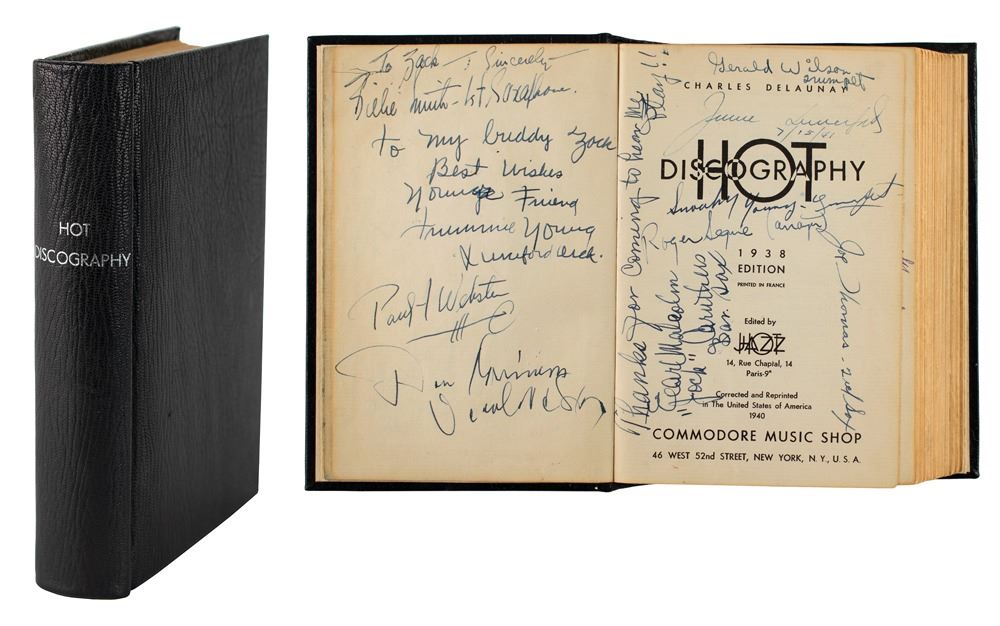 HOT
DISCOGRAPHY
To Zack - Sincerely
Willie Smith - 1st Saxophone.
to my buddy Zack
Best Wishes
Your Friend
Trummie Young
Lunceford Orch.
Paul Webster
Gerald Wilson
trumpet
CHARLES DELAUNAY
Jimmie Lunceford
7/15/41
HOT
DISCOGRAPHY
Snooky Young - trumpet
1938
EDITION
PRINTED IN FRANCE
Edited by
HOT JAZZ
14, Rue Chaptal, 14
Paris-9e
Corrected and Reprinted
in The United States of America
1940
COMMODORE MUSIC SHOP
46 WEST 52nd STREET, NEW YORK, N.Y., U.S.A.
Thanks for coming to hear me
play!!
Earl Malcolm
"Jock" Caruthers
Bar. Sax
Joe Thomas - 2nd Sax